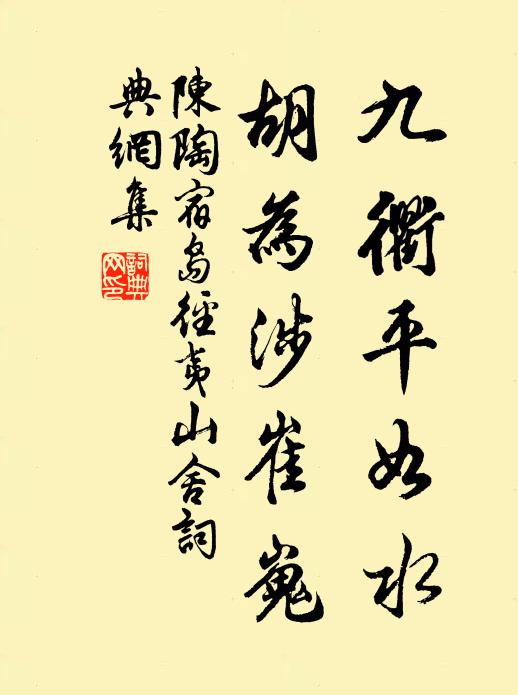 九衢平如水
胡為涉崔嵬
陳陶宿島徑夷山舍詞
典網集
詞典
网印